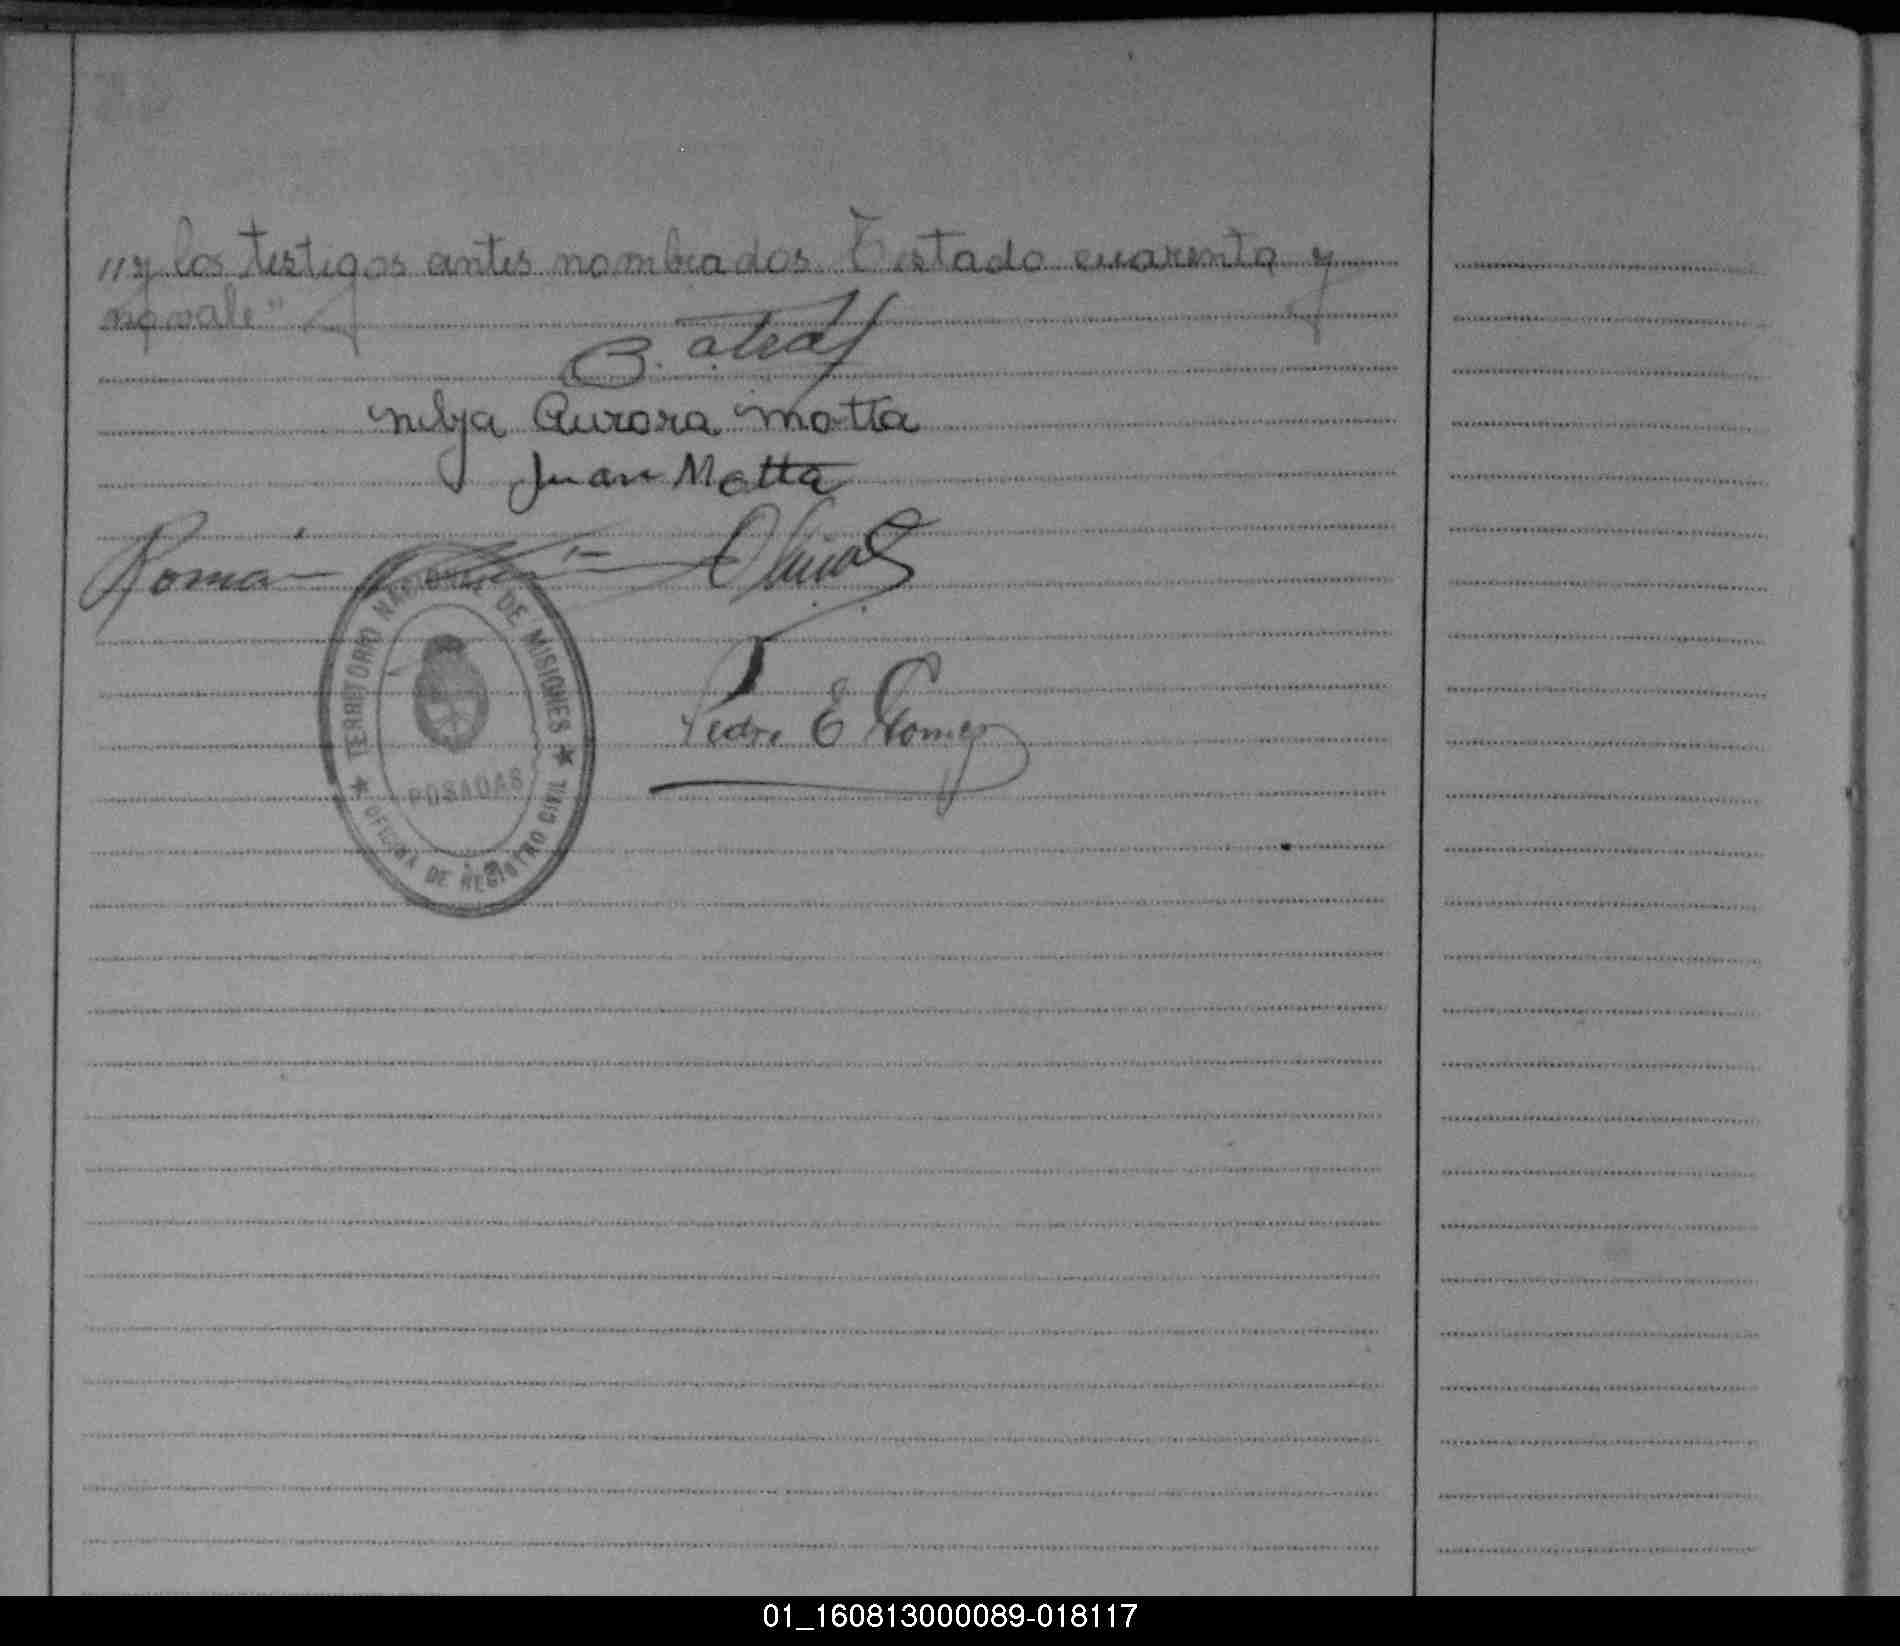 "y los testigos antes nombrados. Testado cuarenta y
no vale"
B.
Nelya Aurora Motta
Juan Motta
Román
TERRITORIO NACIONAL DE MISIONES
POSADAS
OFICINA DE REGISTRO CIVIL
Pedro E Gomez
01_160813000089-018117